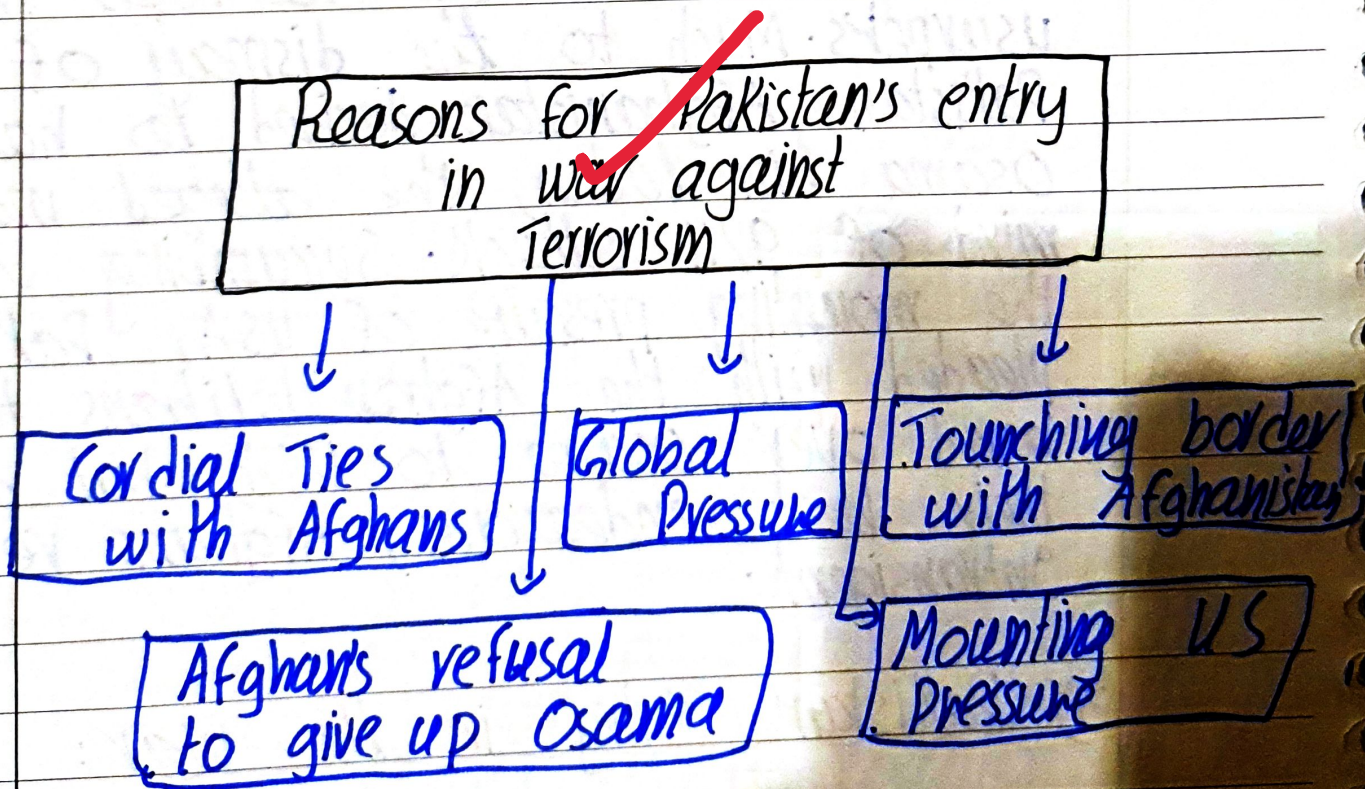 Reasons for Pakistan's entry
in war against
Terrorism
Cordial Ties
with Afghans
Global
Pressure
Tounching border
with Afghanistan
Afghan's refusal
to give up Osama
Mounting US
Pressure